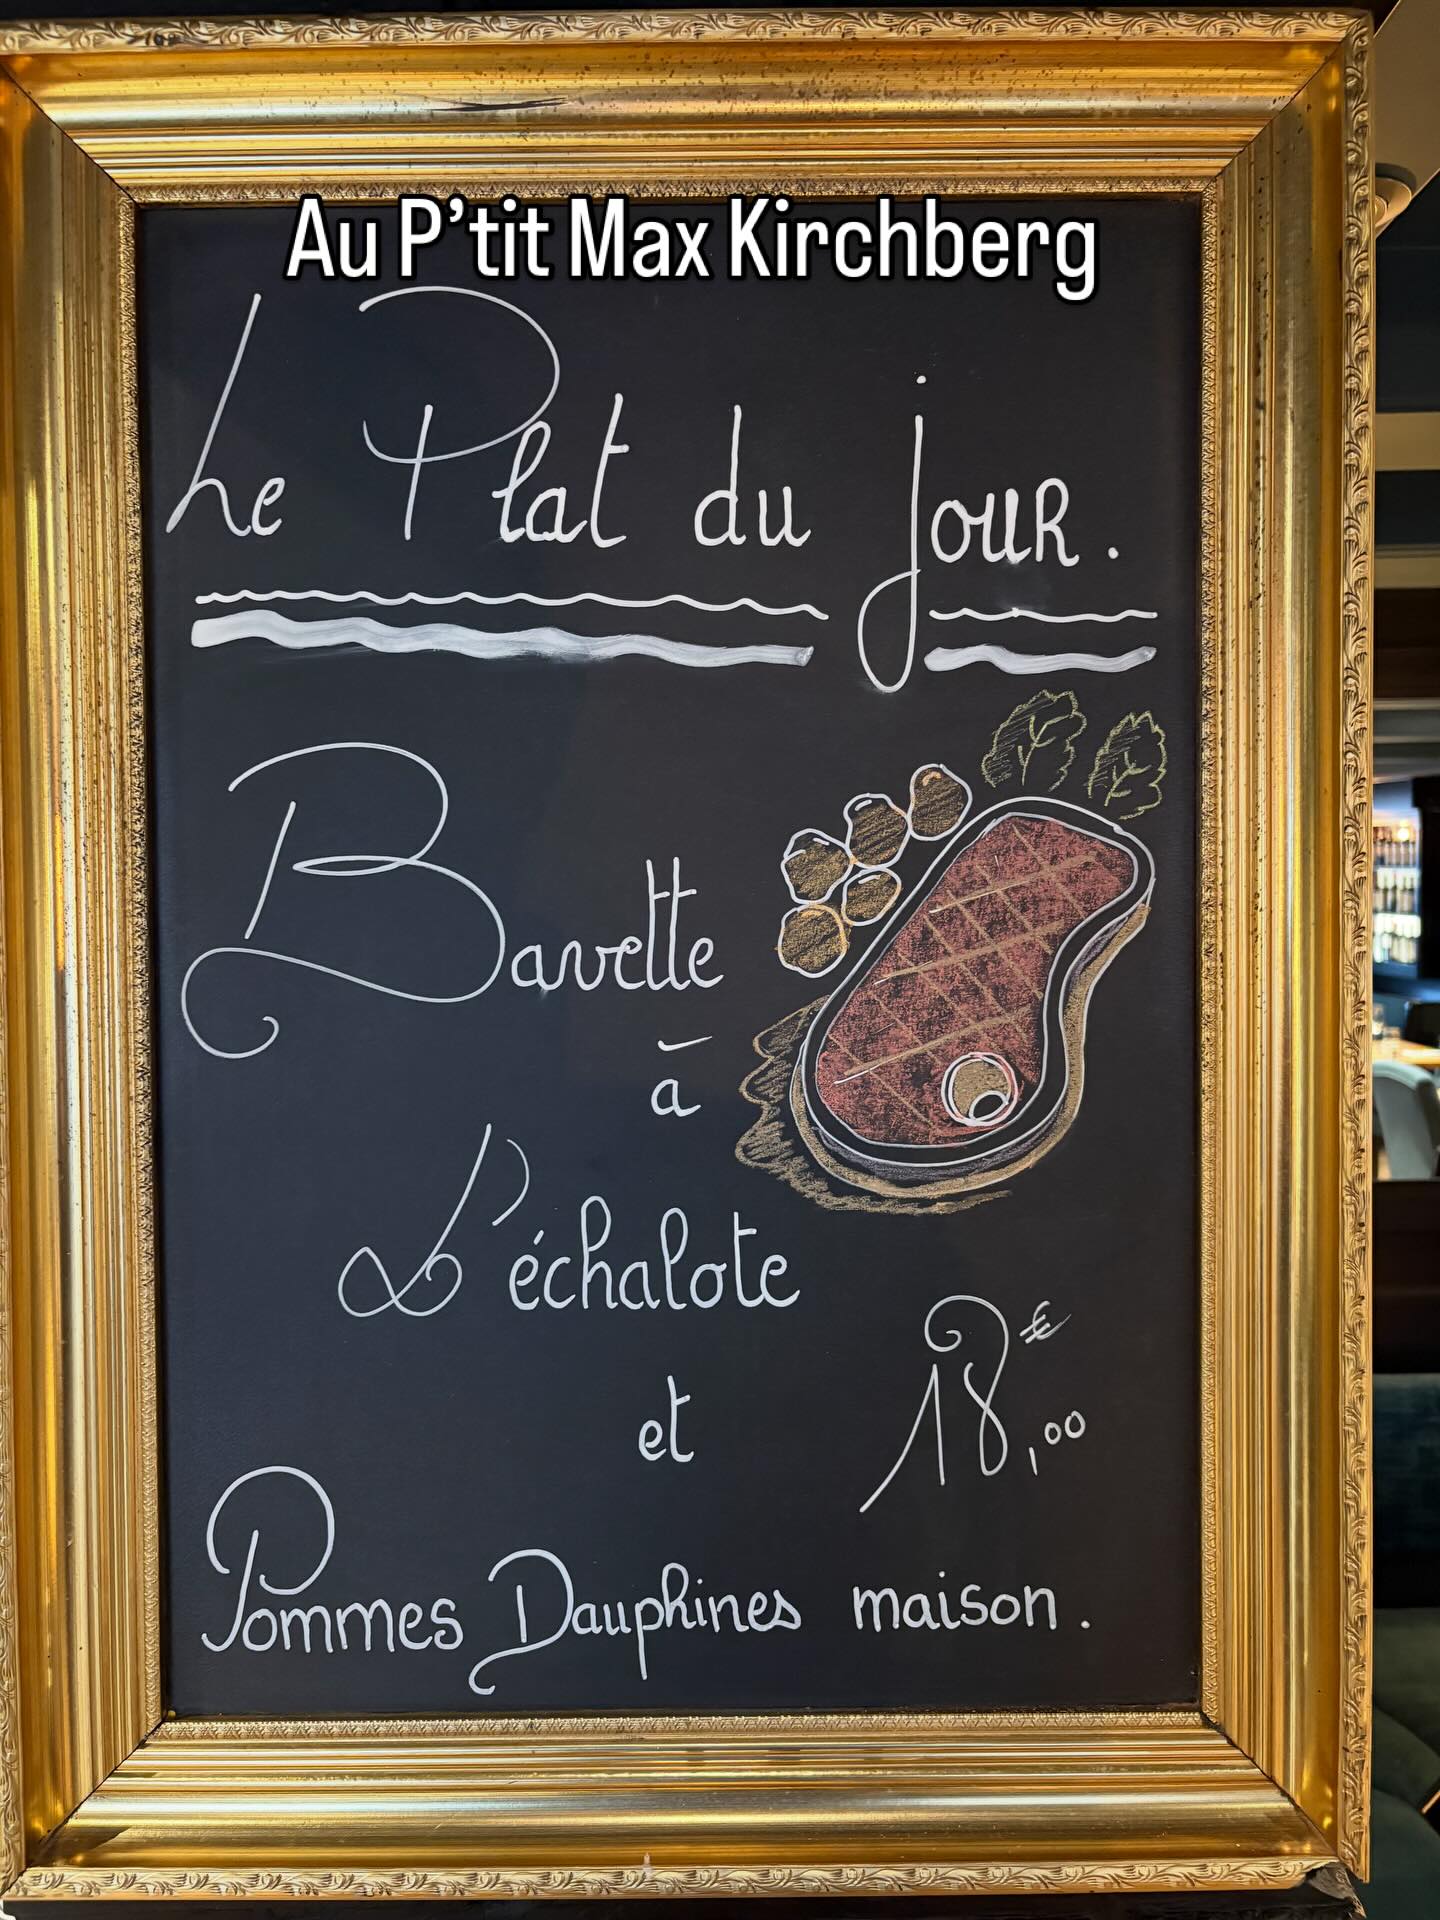 Au P'tit Max Kirchberg
Le Plat du jour.
Bavette
à
L'échalote
18,00€
et
Pommes Dauphines maison.